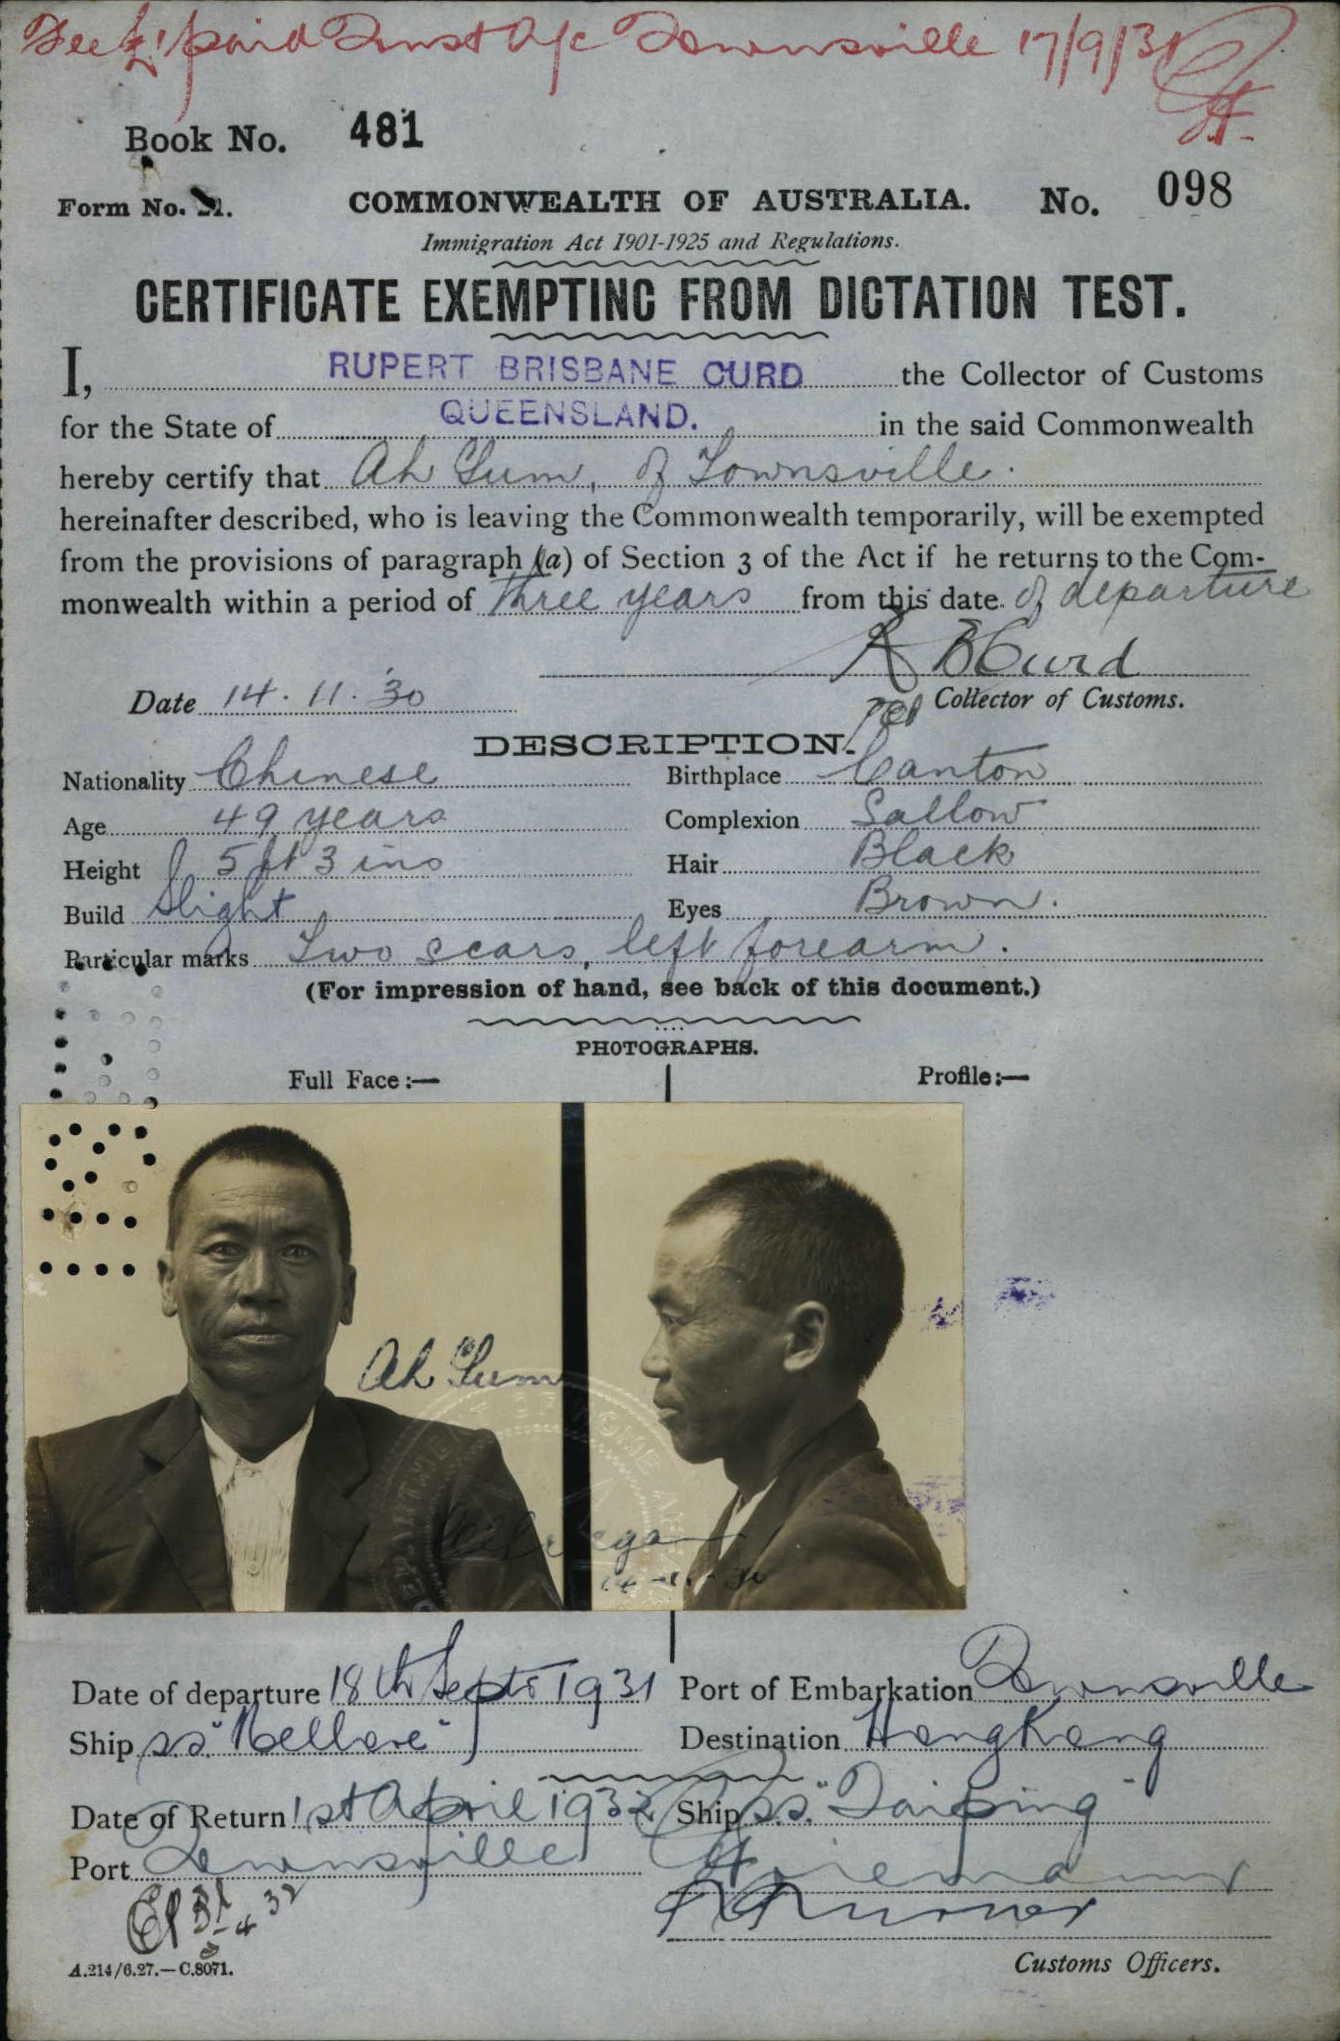 Fee £1 paid Trust A/c Townsville 17/9/31
Book No. 481
Form No. 21.
COMMONWEALTH OF AUSTRALIA. No. 098
Immigration Act 1901-1925 and Regulations.
CERTIFICATE EXEMPTING FROM DICTATION TEST.
I, RUPERT BRISBANE CURD the Collector of Customs
for the State of QUEENSLAND. in the said Commonwealth
hereby certify that Ah Sum, of Townsville.
hereinafter described, who is leaving the Commonwealth temporarily, will be exempted
from the provisions of paragraph (a) of Section 3 of the Act if he returns to the Com-
monwealth within a period of three years from this date of departure
R B Curd
Date 14. 11. '30 Collector of Customs.
DESCRIPTION.
Nationality Chinese Birthplace Canton
Age 49 years Complexion Sallow
Height 5 ft 3 ins Hair Black
Build Slight Eyes Brown.
Particular marks Two scars, left forearm.
(For impression of hand, see back of this document.)
PHOTOGRAPHS.
Full Face:— Profile:—
Ah Sum
Date of departure 18th Sept 1931 Port of Embarkation Townsville
Ship s.s. "Nellore" Destination HongKong
Date of Return 1st April 1932 Ship s.s. "Taiping"
Port Townsville
A.214/6.27.—C.8071.
Customs Officers.